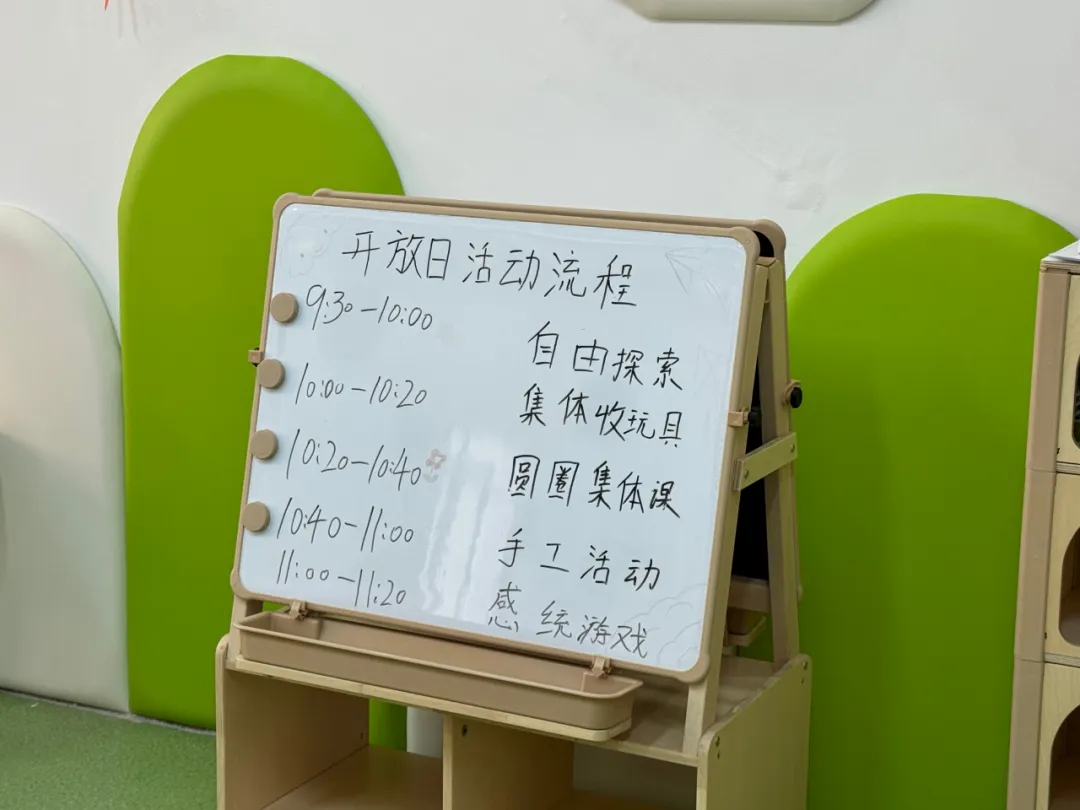 开放日活动流程
9:30-10:00 自由探索
10:00-10:20 集体收玩具
10:20-10:40 圆圈集体课
10:40-11:00 手工活动
11:00-11:20 感统游戏